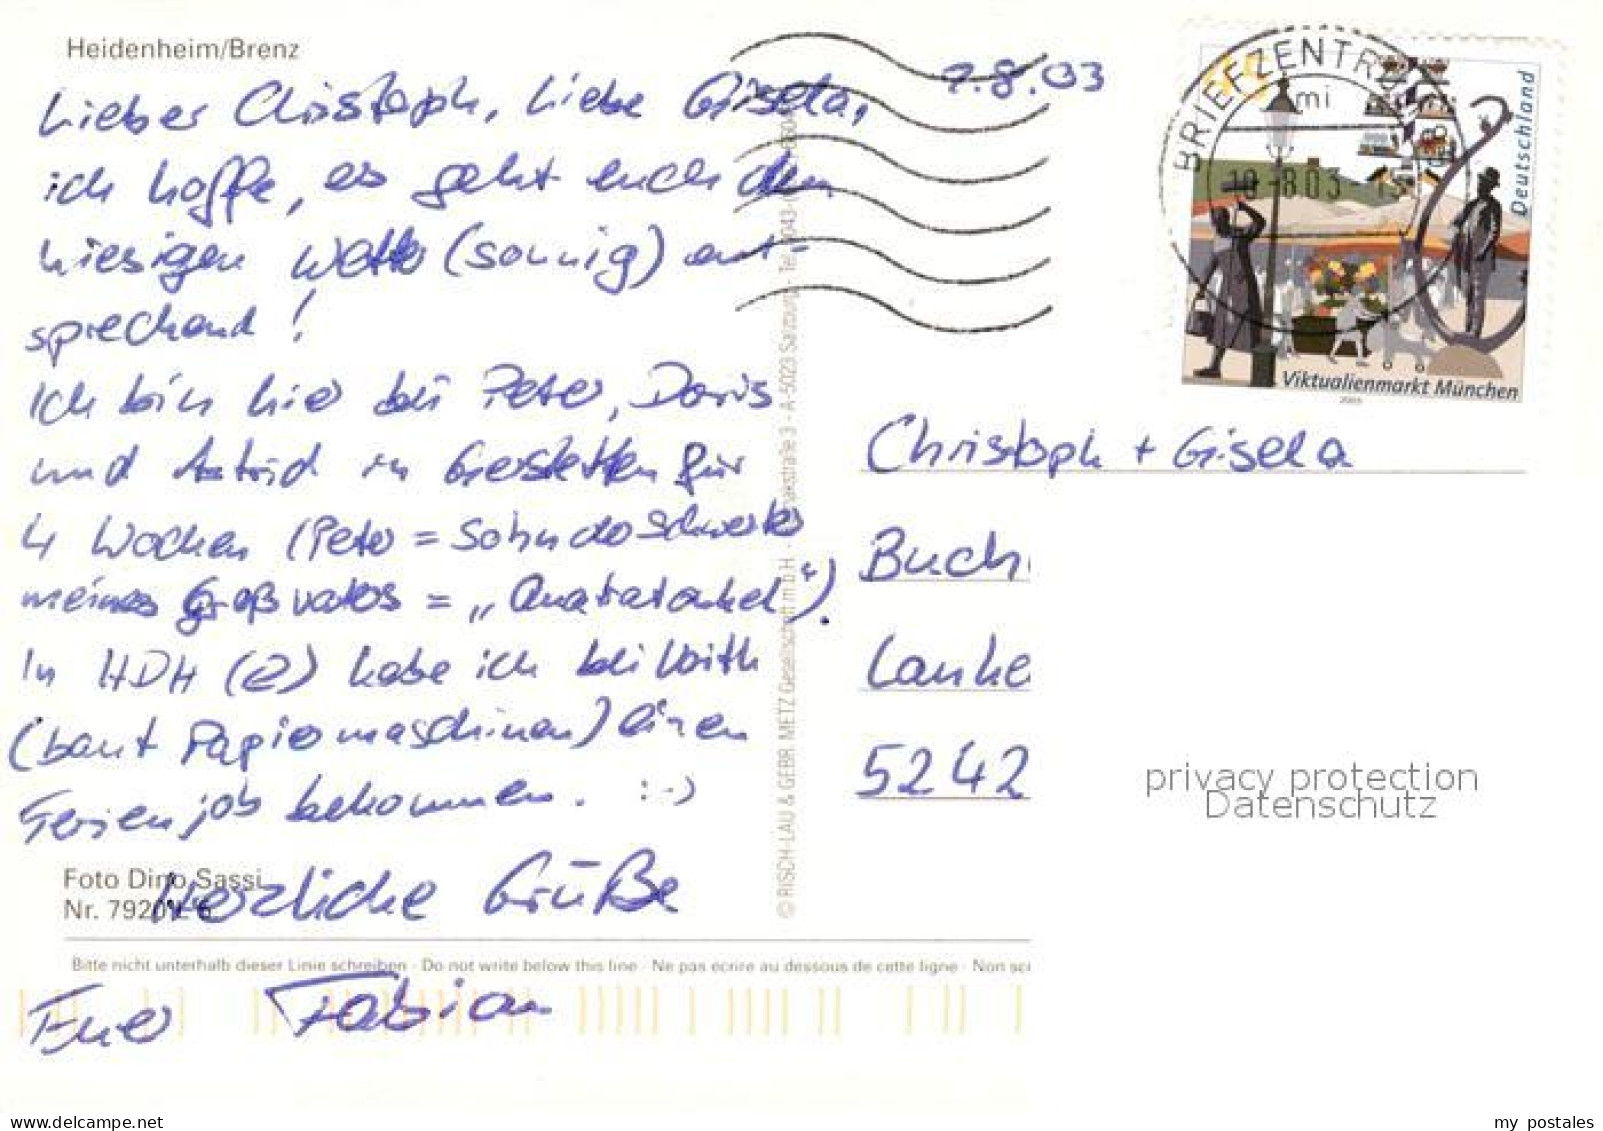 Heidenheim/Brenz
9.8.03
Lieber Christoph, liebe Gisela,
ich hoffe, es geht euch dem
hiesigen Wetter (sonnig) ent-
sprechend!
Ich bin hier bei Peter, Doris
und Astrid in Gerstetten für
4 Wochen (Peter = Sohn der Schwester
meines Großvaters =
In HDH (2) habe ich bei Voith
(baut Papiermaschinen) einen
Ferienjob bekommen. :-)
Herzliche Grüße
Euer Fabian
Foto Dino Sassi
Nr. 7920
Bitte nicht unterhalb dieser Linie schreiben · Do not write below this line · Ne pas écrire au dessous de cette ligne · Non scri
© RISCH-LAU & GEBR. METZ Gesellschaft m.b.H. - 3 - A-5023 Salzburg - Tel.
BRIEFZENTRUM
mi
10.-8.03
Deutschland
Viktualienmarkt München
2003
Christoph + Gisela
Buch
Lanke
5242
privacy protection
Datenschutz
www.delcampe.net
my postales